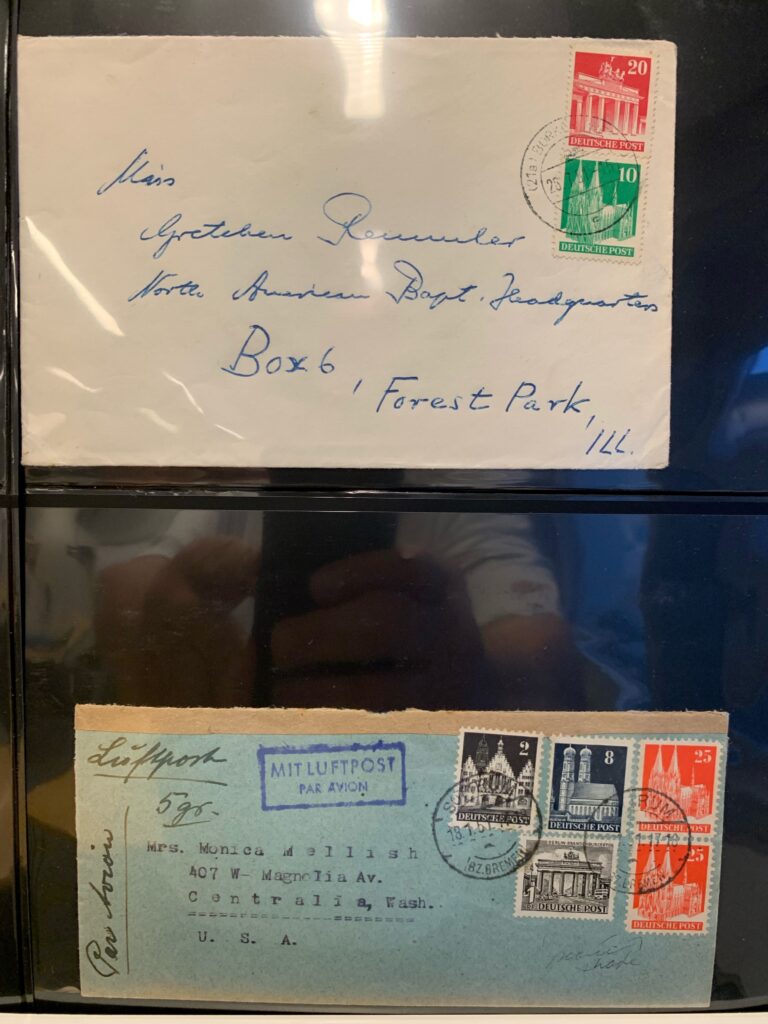 20
DEUTSCHE POST
10
DEUTSCHE POST
(21a)
Miss
Gretchen Remmler
North American Bapt. Headquarters
Box 6,
Forest Park,
ILL.
Luftpost
5gr.
Par Avion
MIT LUFTPOST
PAR AVION
2
DEUTSCHE POST
8
DEUTSCHE POST
25
DEUTSCHE POST
25
DEUTSCHE POST
1
DEUTSCHE POST
18.1.51
(BZ. BREMEN)
Mrs. Monica Mellish
407 W- Magnolia Av.
Centralia, Wash.
U. S. A.